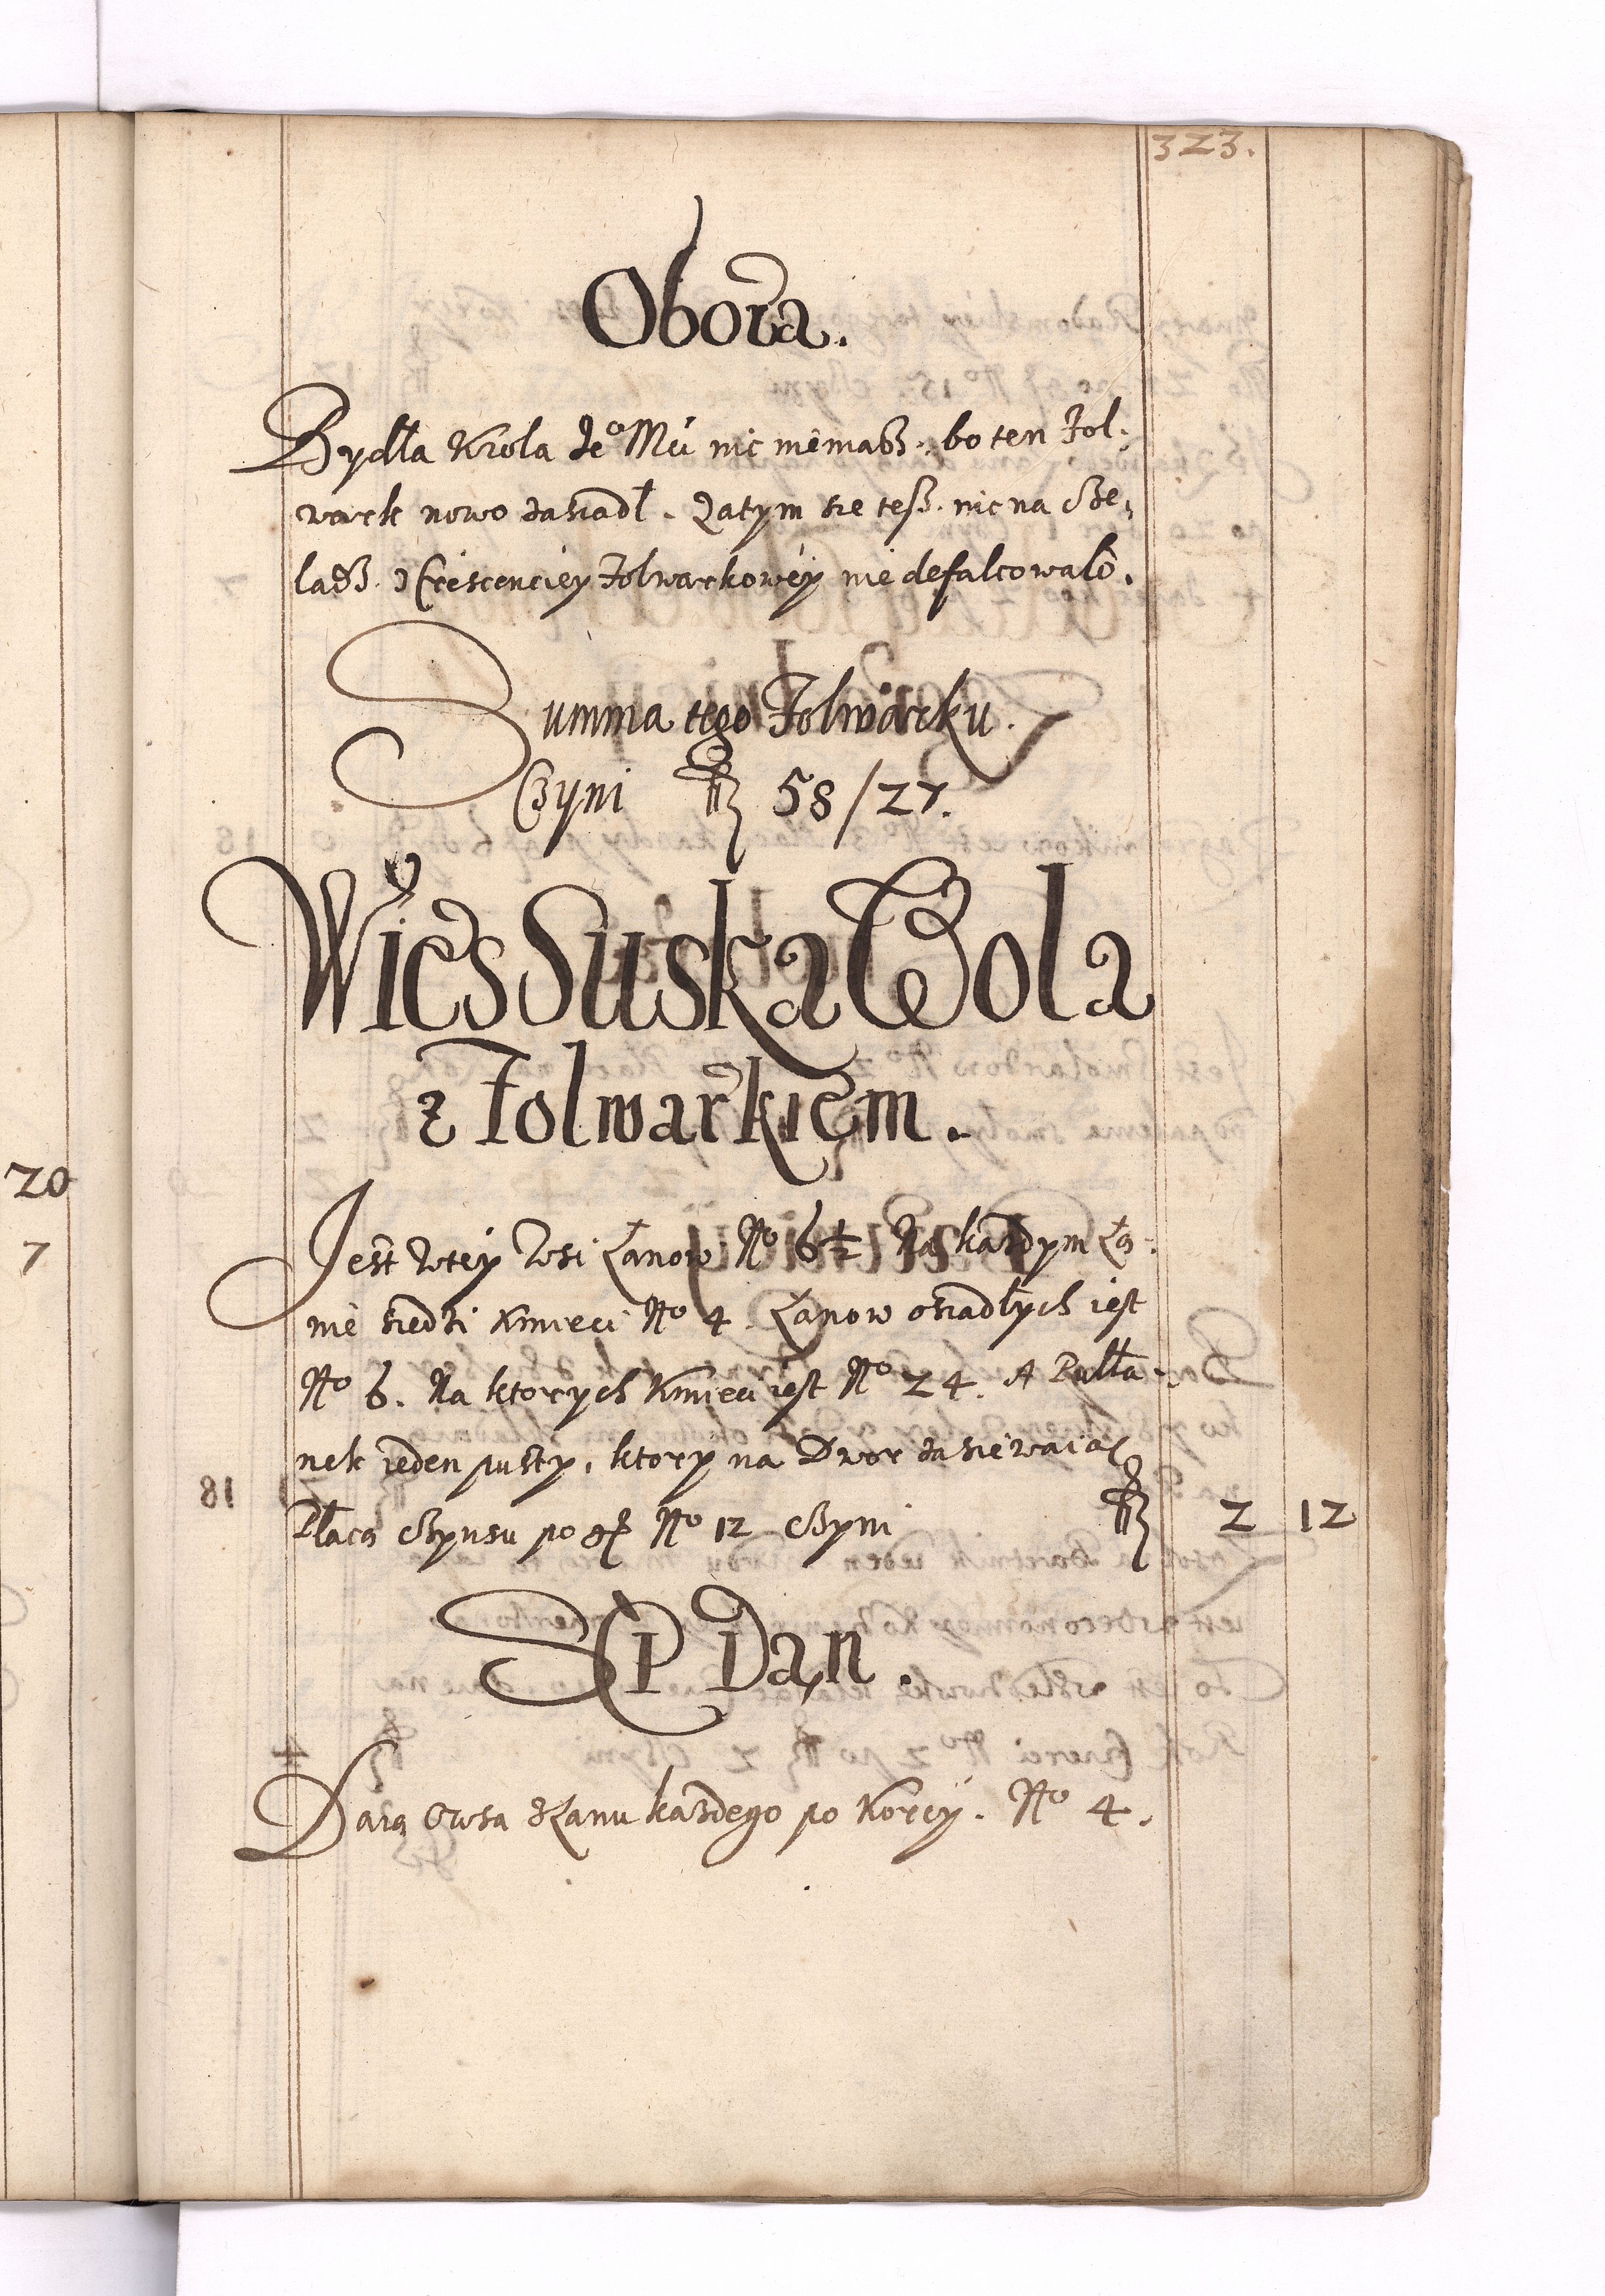 323.
Obora.
Bydła Krola Jeo Mci nic niemasz. bo ten Fol:
wark nowo zasiadł. Zatym sie tesz. nic na Cze,
ladz. z Crescenciey Folwarkowey nie defalcowało.
Summa tego Folwarku.
Czyni 58/27.
Wies Suska Wola
z Folwarkiem.
Jest w tey Wsi Łanow No 6½ Na kazdym Ła:
nie siedzi Kmieci No 4. Łanow osiadłych iest
No 6. Na ktorych Kmieci iest No 24. A Pułła-
nek ieden pusty, ktory na Dwor zasiewaią
Płacą Czynszu po gr No 12 czyni fl 2 12
SEP Dan.
Daią Owsa z Łanu kazdego po Korcy. No 4.
20
7